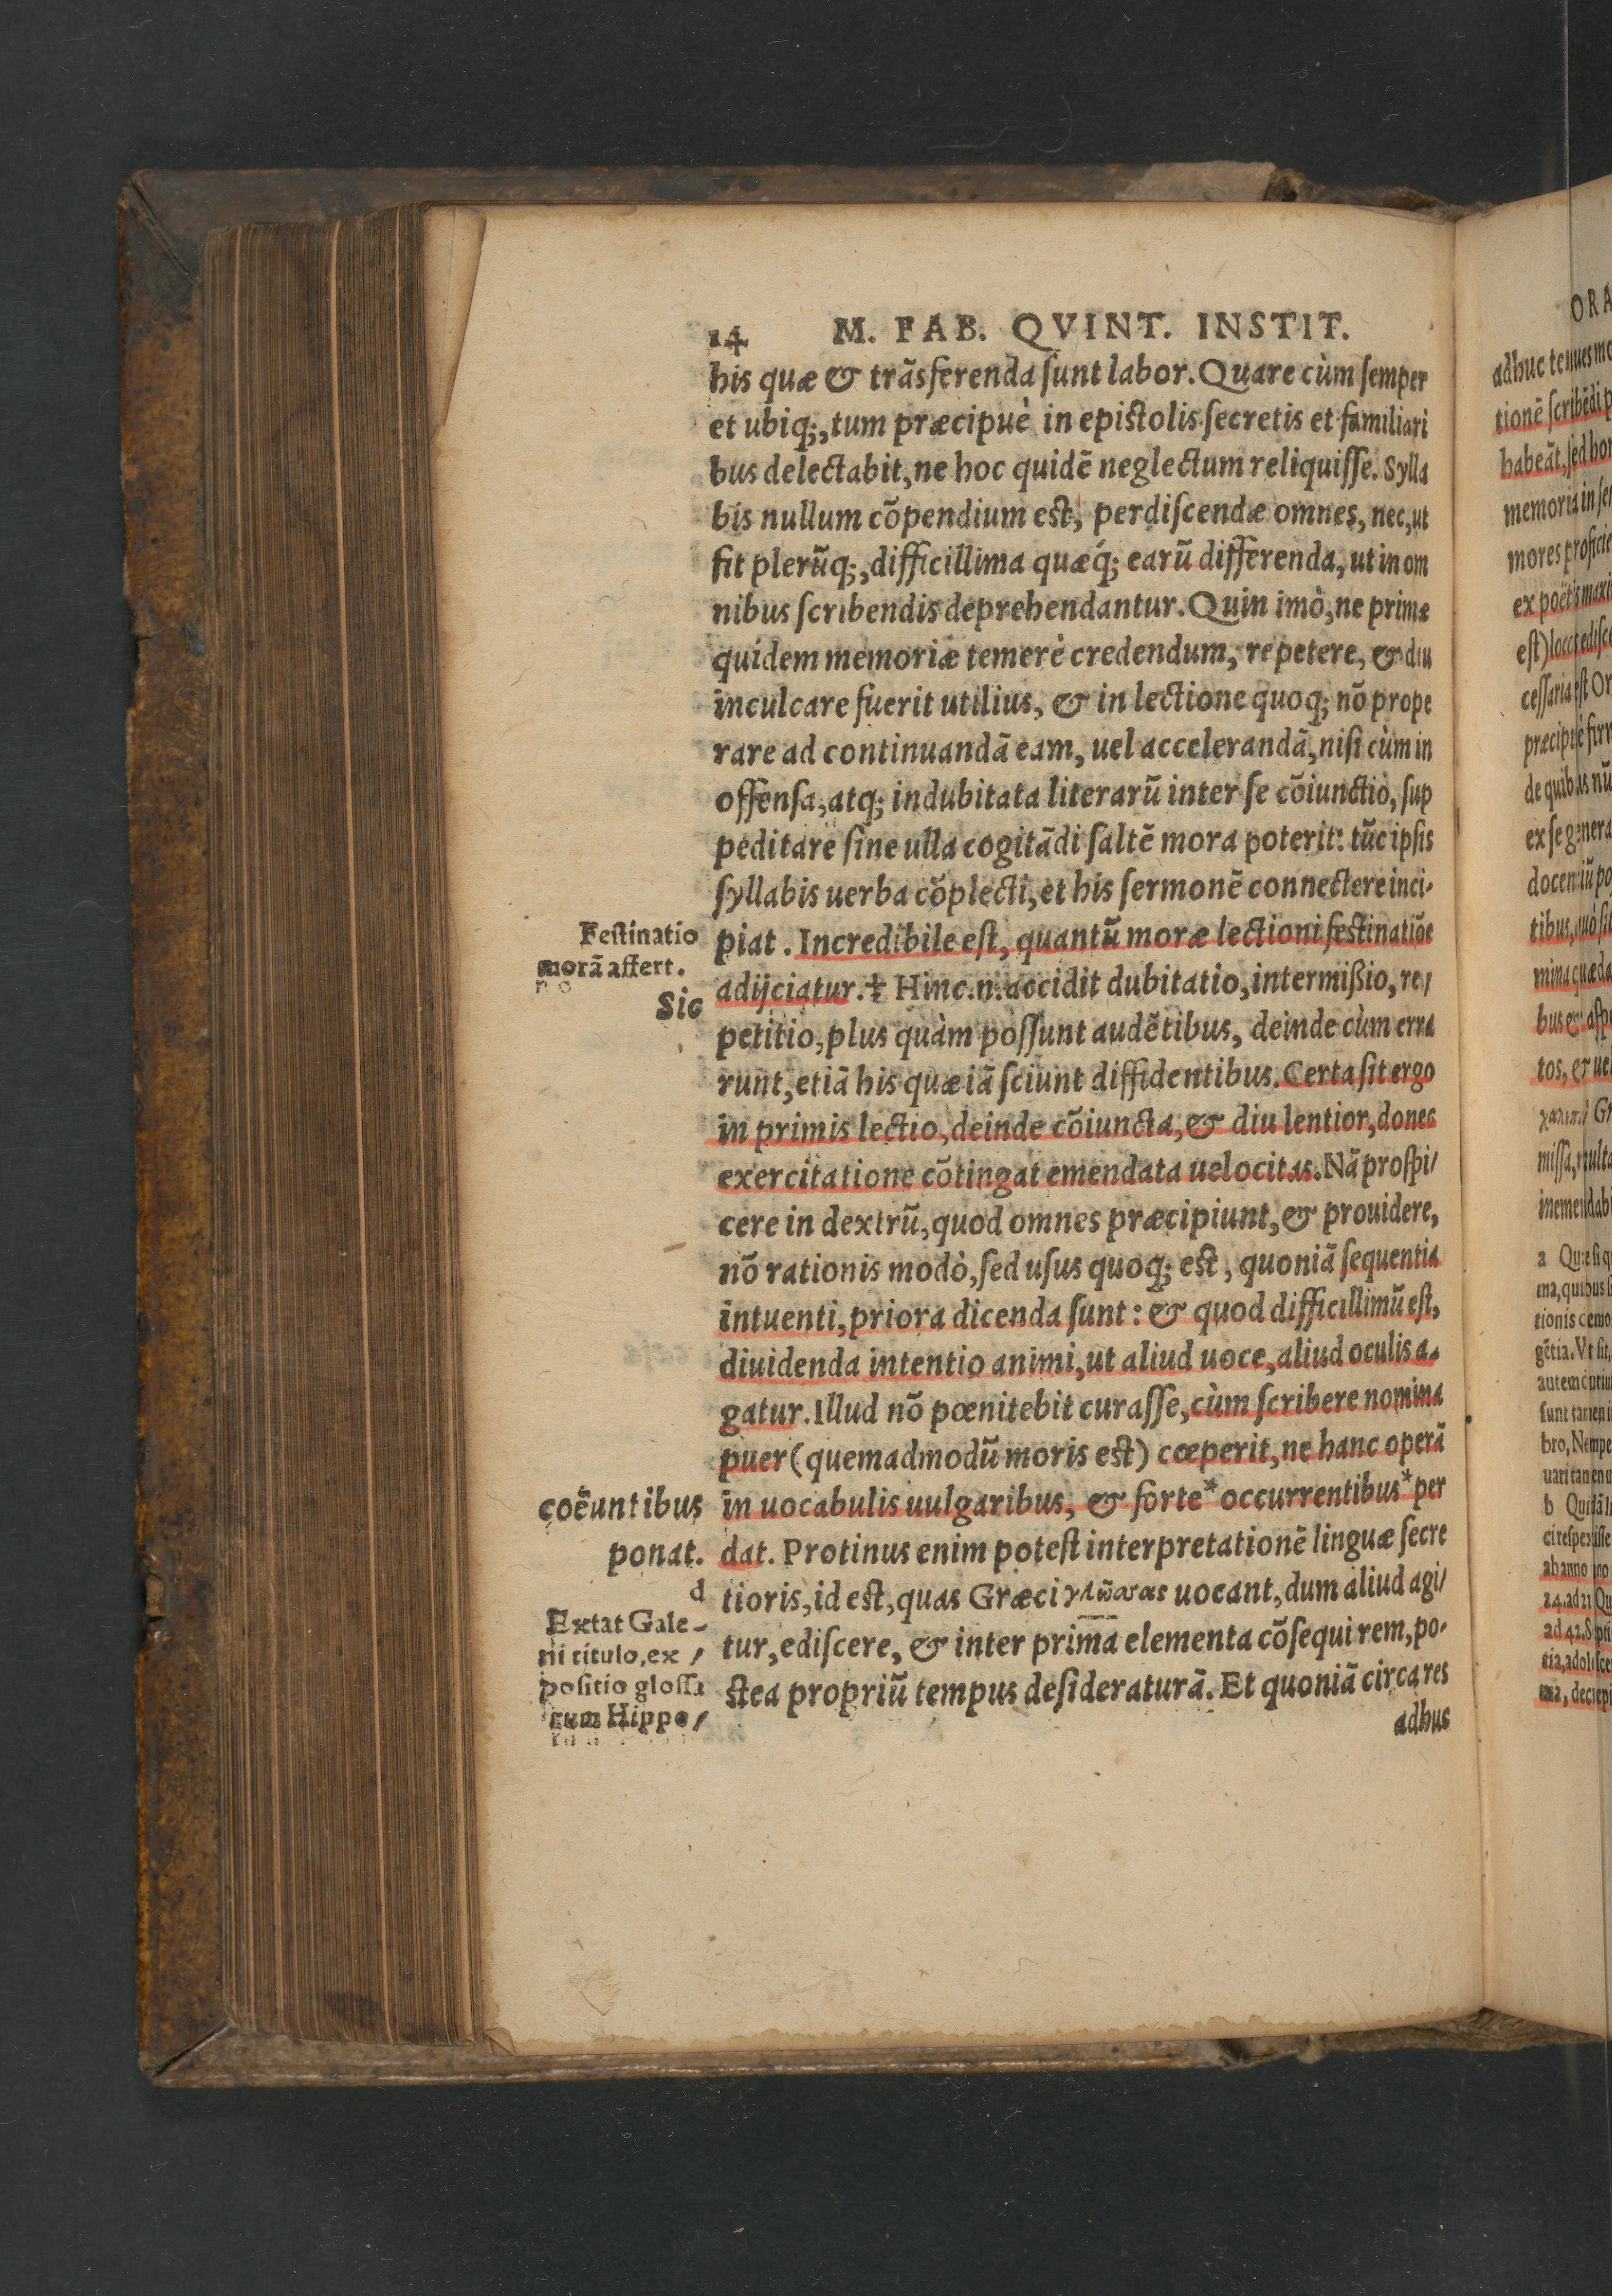 14 M. FAB. QVINT. INSTIT.
his quæ & trãsferenda sunt labor. Quare cùm semper
et ubiq;, tum præcipuè in epistolis secretis et familiari
bus delectabit, ne hoc quidẽ neglectum reliquisse. Sylla
bis nullum cõpendium est, perdiscendæ omnes, nec, ut
fit plerũq;, difficillima quæq́; earũ differenda, ut in om
nibus scribendis deprehendantur. Quin imò, ne primæ
quidem memoriæ temerè credendum, repetere, & diu
inculcare fuerit utilius, & in lectione quoq; nõ prope
rare ad continuandã eam, uel accelerandã, nisi cùm in
offensa, atq; indubitata literarũ inter se cõiunctio, sup
peditare sine ulla cogitãdi saltẽ mora poterit: tũc ipsis
syllabis uerba cõplecti, et his sermonẽ connectere inci-
piat. Incredibile est, quantũ moræ lectioni festinatiõe
adijciatur.⸓ Hinc.n.accidit dubitatio, intermißio, re/
petitio, plus quàm possunt audẽtibus, deinde cùm erra
runt, etiã his quæ iã sciunt diffidentibus. Certa sit ergo
in primis lectio, deinde cõiuncta, & diu lentior, donec
exercitatione cõtingat emendata uelocitas. Nã prospi/
cere in dextrũ, quod omnes præcipiunt, & prouidere,
nõ rationis modò, sed usus quoq; est, quoniã sequentia
intuenti, priora dicenda sunt: & quod difficillimũ est,
diuidenda intentio animi, ut aliud uoce, aliud oculis a-
gatur. Illud nõ pœnitebit curasse, cùm scribere nomina
puer (quemadmodũ moris est) cœperit, ne hanc operã
in uocabulis uulgaribus, & forte* occurrentibus* per
dat. Protinus enim potest interpretationẽ linguæ secre
tioris, id est, quas Græci γλώσσας uocant, dum aliud agi/
tur, ediscere, & inter prima elementa cõsequi rem, po-
stea propriũ tempus desideraturã. Et quoniã circa res
adhuc
Festinatio
morã affert.
Sic
coëuntibus
ponat.
d
Extat Gale-
ni titulo, ex /
positio glossa
rum Hippo/
ORA
adhuc tenues mo
tionẽ scribẽdi p
habeãt, sed hon
memoria in sen
mores proficie
ex poëtis maxi
est) locos edisce
cessaria est Or
de quibus nũ
ex se genera
docentiũ po
mina quæda
tos, & uel
a Quæ si q